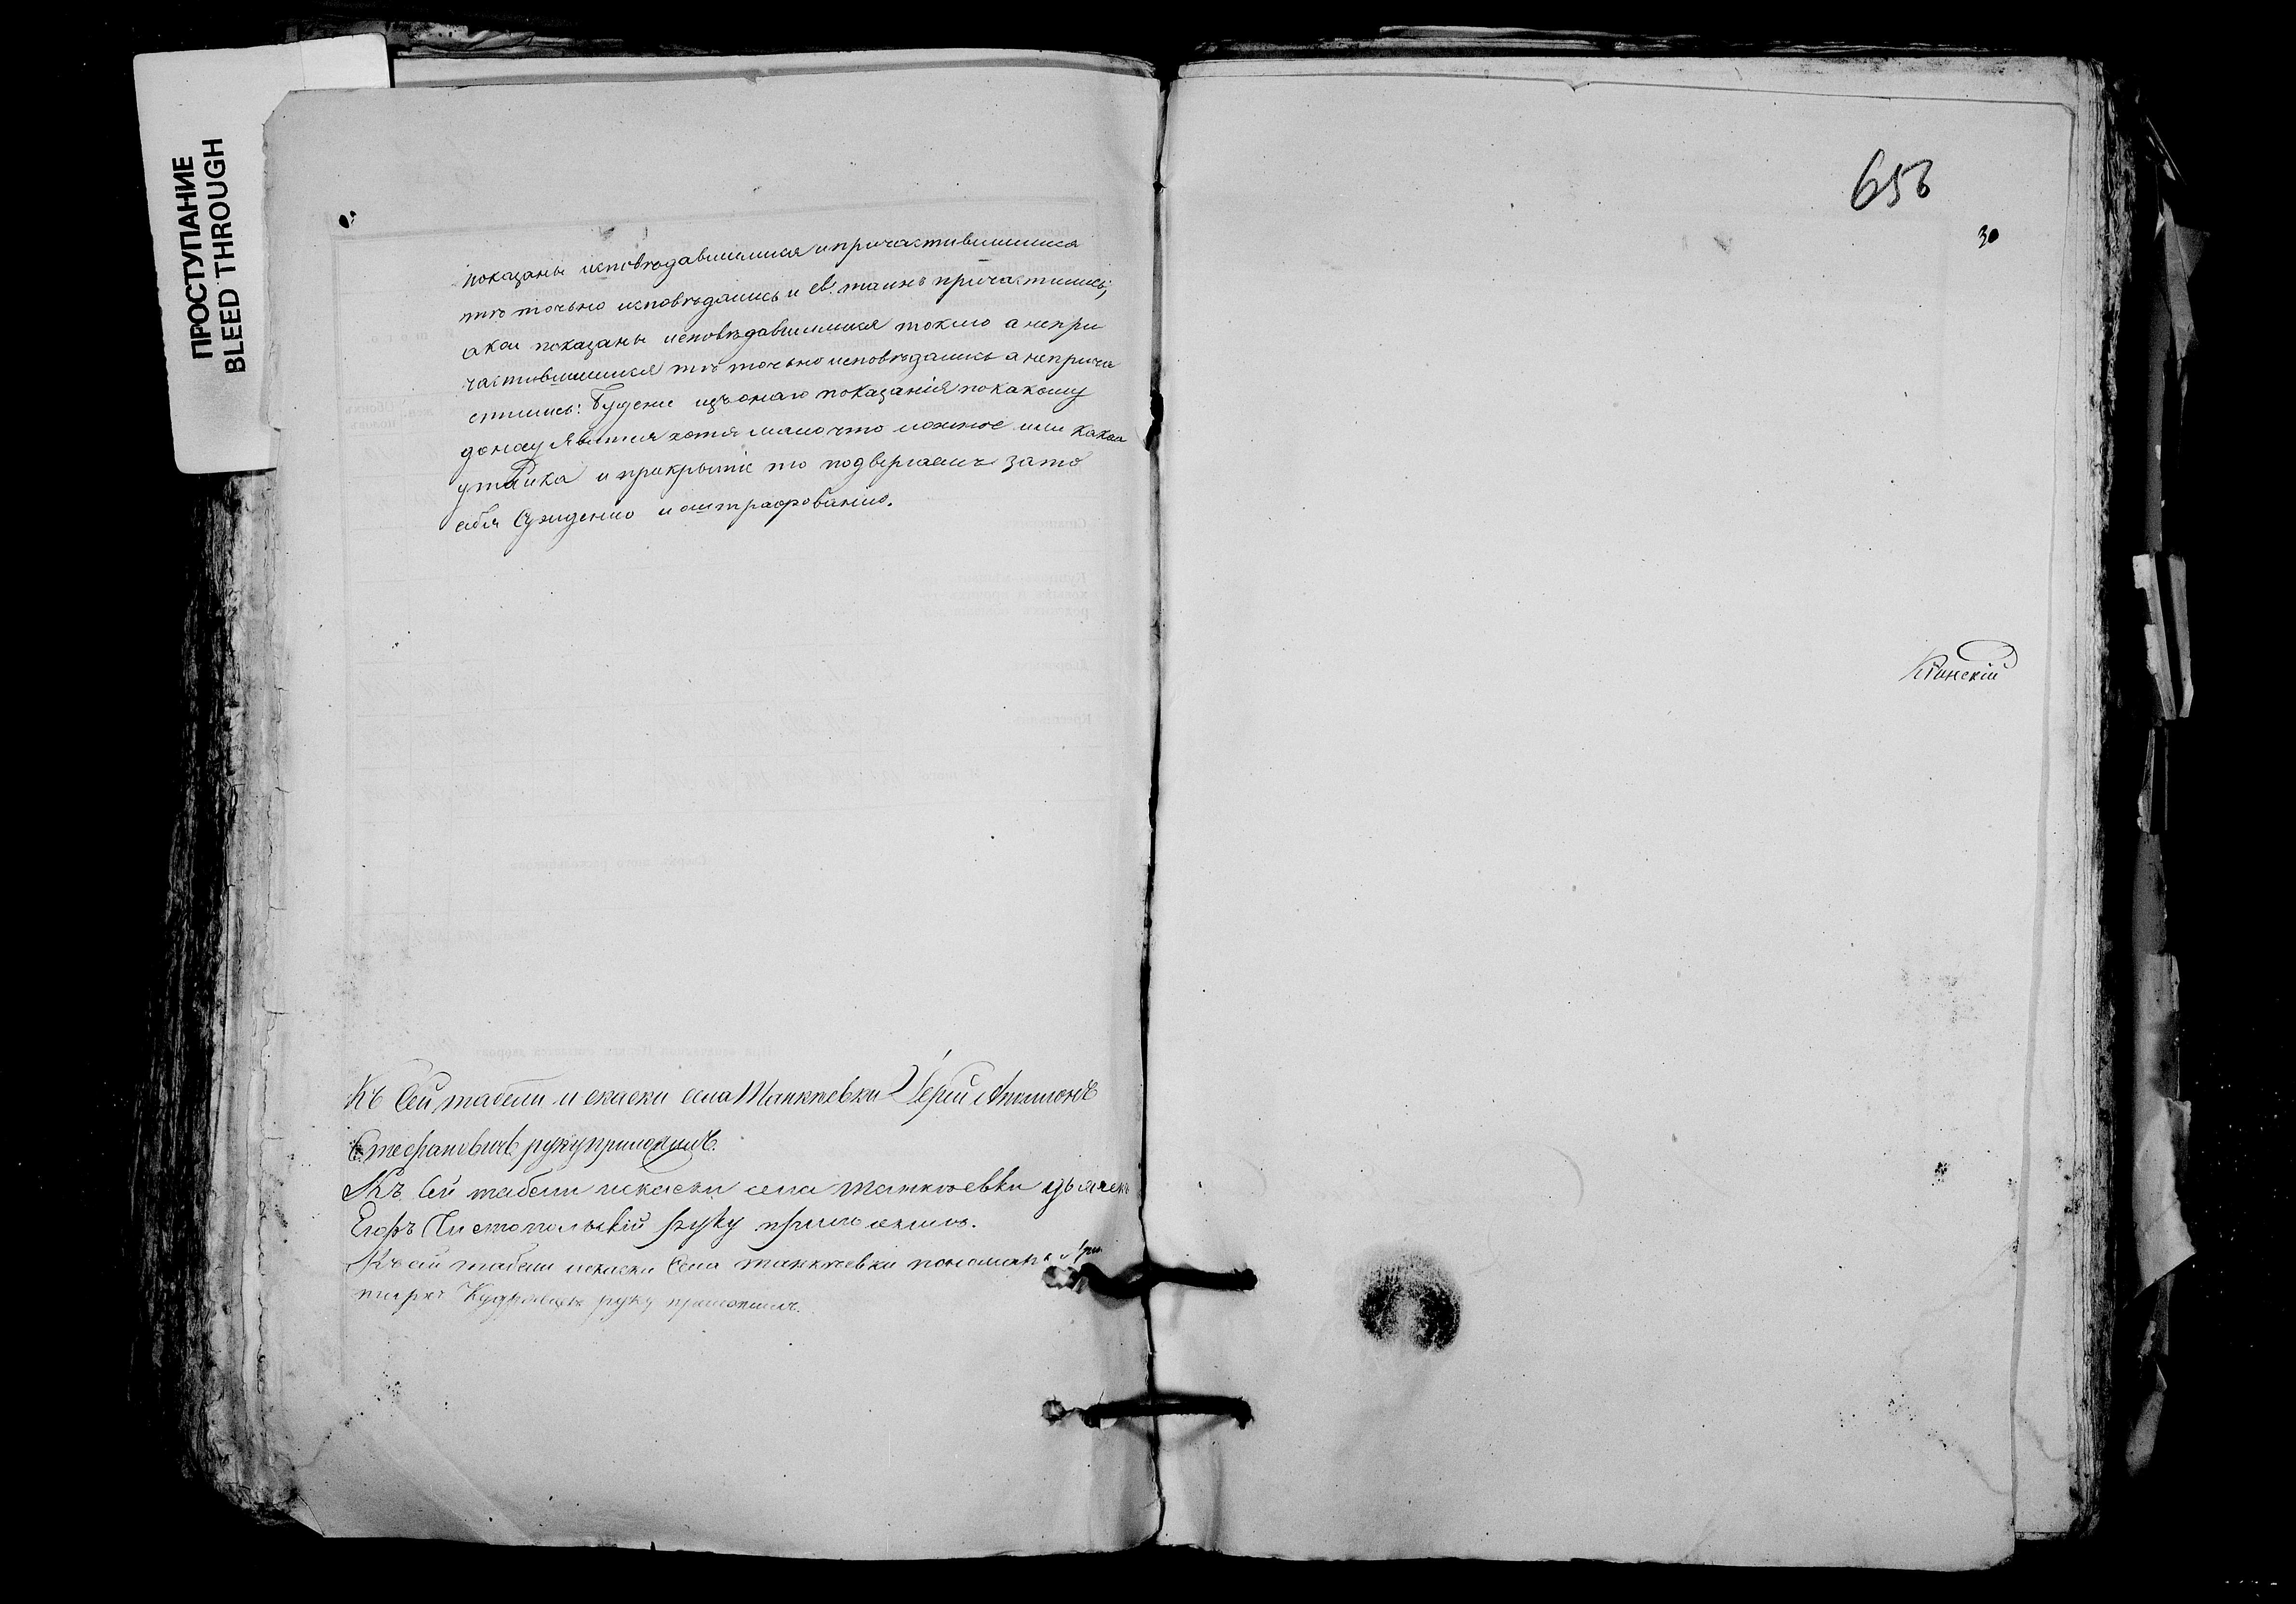 ПРОСТУПАНИЕ
BLEED THROUGH
показаны исповѣдавшимися и причастившимися
тѣ точьно исповѣдались и св. таинъ причастились;
а кои показаны исповѣдавшимися токмо а непри
частившимися тѣ точьно исповѣдались а неприча
стились: Буде же изъ онаго показанія по какому
доносу явится хотя мало что ложное или какая
утайка и прикрытіе то подвергаемъ за то
себя сужденію и оштрафованію.
Къ сей табели и скаски села Танкѣевки Іерей
Стефановичъ руку приложилъ.
Къ сей табели и скаски села танкѣевки дьячекъ
Егоръ Чистопольскій руку приложилъ.
Къ сей табели и скаски села танкѣевки пономарь
руку приложилъ.
656
30